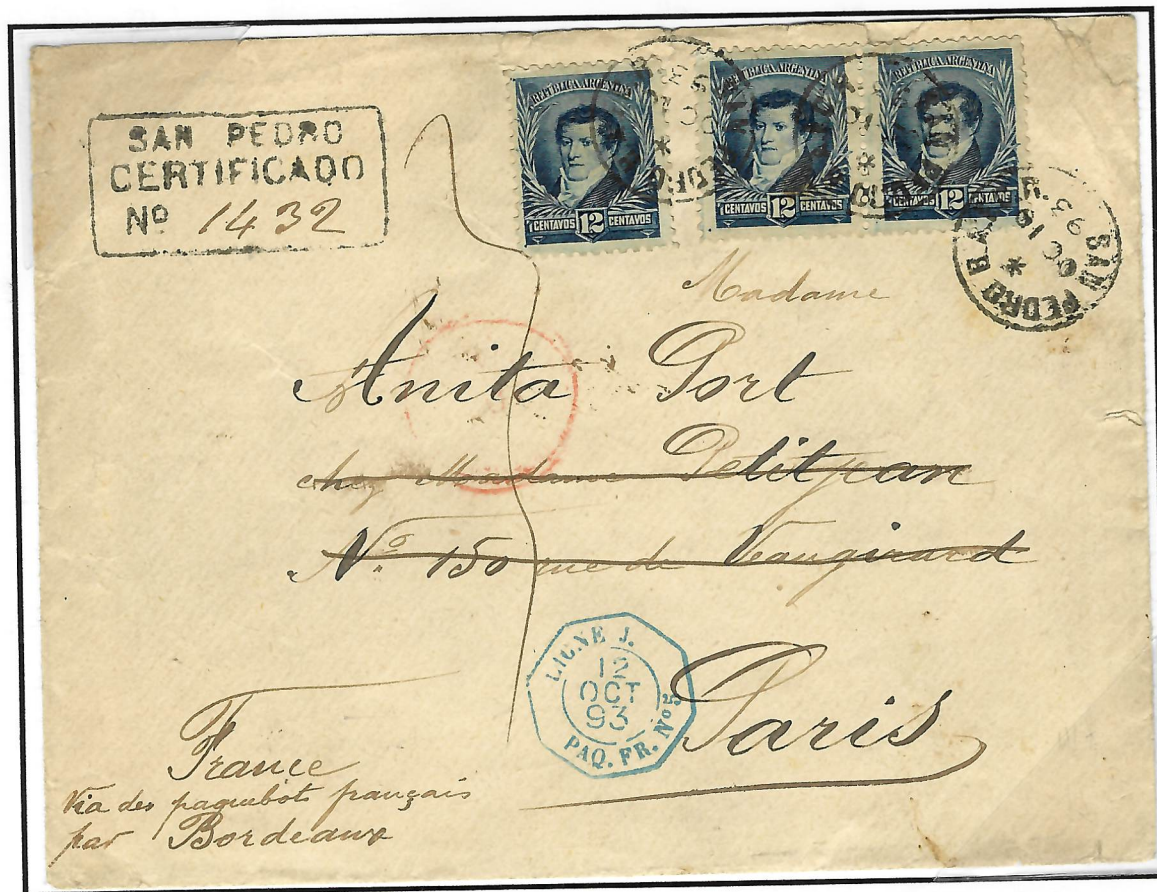 SAN PEDRO
CERTIFICADO
Nº 1432
REPUBLICA ARGENTINA
CENTAVOS 12 CENTAVOS
REPUBLICA ARGENTINA
CENTAVOS 12 CENTAVOS
REPUBLICA ARGENTINA
CENTAVOS 12 CENTAVOS
SAN PEDRO
OC
93
Madame
Anita Port
chez Madame Petitjean
Nº 150 rue de Vaugirard
Paris
LIGNE J.
12
OCT
93
PAQ. FR. Nº5
France
Via des paquebots français
par Bordeaux